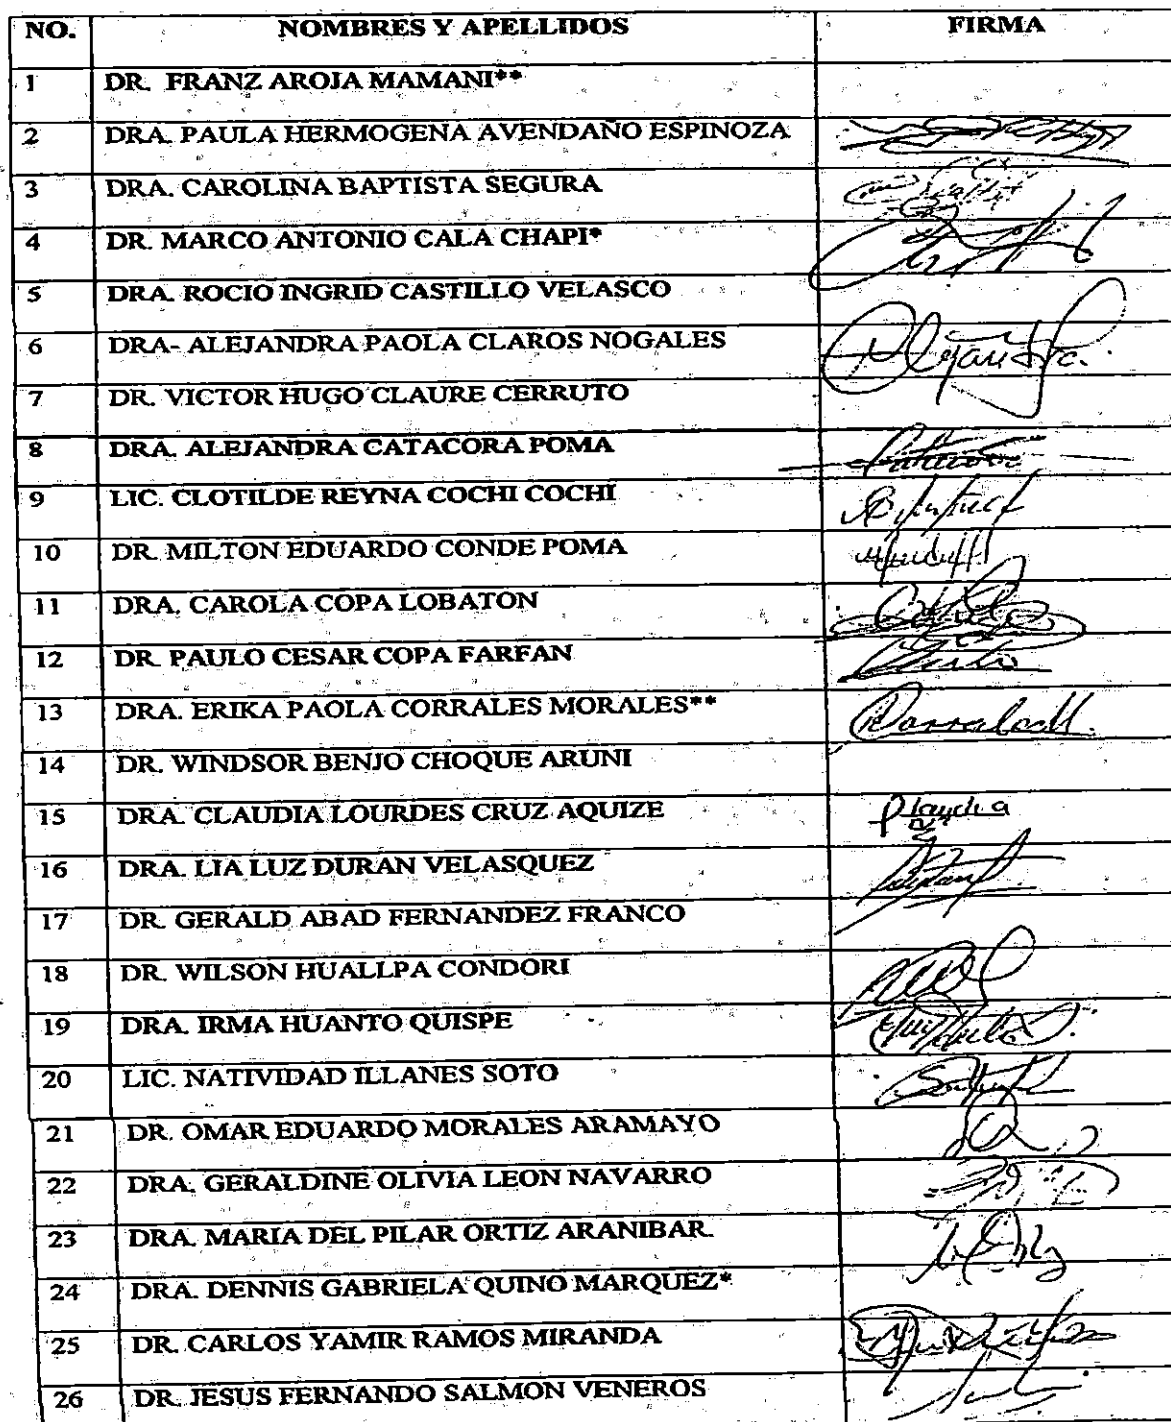 NO. NOMBRES Y APELLIDOS FIRMA
1 DR. FRANZ AROJA MAMANI**
2 DRA. PAULA HERMOGENA AVENDAÑO ESPINOZA
3 DRA. CAROLINA BAPTISTA SEGURA
4 DR. MARCO ANTONIO CALA CHAPI*
5 DRA. ROCIO INGRID CASTILLO VELASCO
6 DRA- ALEJANDRA PAOLA CLAROS NOGALES
7 DR. VICTOR HUGO CLAURE CERRUTO
8 DRA. ALEJANDRA CATACORA POMA
9 LIC. CLOTILDE REYNA COCHI COCHI
10 DR. MILTON EDUARDO CONDE POMA
11 DRA. CAROLA COPA LOBATON
12 DR. PAULO CESAR COPA FARFAN
13 DRA. ERIKA PAOLA CORRALES MORALES**
14 DR. WINDSOR BENJO CHOQUE ARUNI
15 DRA. CLAUDIA LOURDES CRUZ AQUIZE Claudia
16 DRA. LIA LUZ DURAN VELASQUEZ
17 DR. GERALD ABAD FERNANDEZ FRANCO
18 DR. WILSON HUALLPA CONDORI
19 DRA. IRMA HUANTO QUISPE
20 LIC. NATIVIDAD ILLANES SOTO
21 DR. OMAR EDUARDO MORALES ARAMAYO
22 DRA. GERALDINE OLIVIA LEON NAVARRO
23 DRA. MARIA DEL PILAR ORTIZ ARANIBAR
24 DRA. DENNIS GABRIELA QUINO MARQUEZ*
25 DR. CARLOS YAMIR RAMOS MIRANDA
26 DR. JESUS FERNANDO SALMON VENEROS